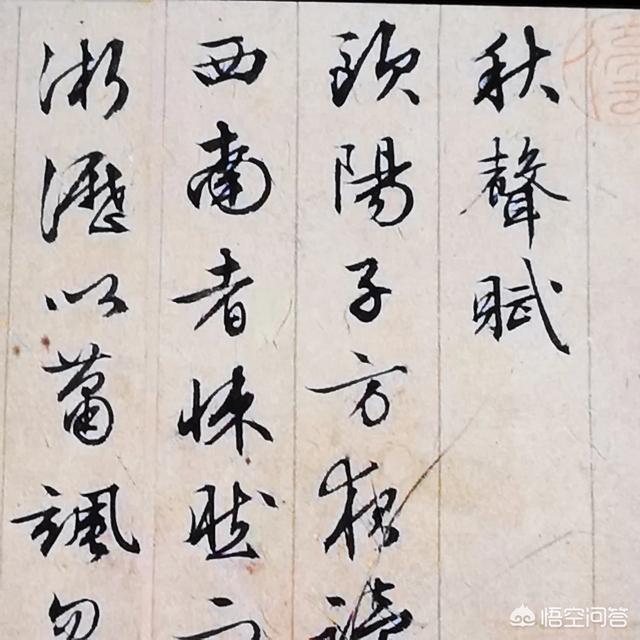 秋聲賦
歐陽子方夜讀
西南者悚然
淅瀝以蕭颯
悟空问答